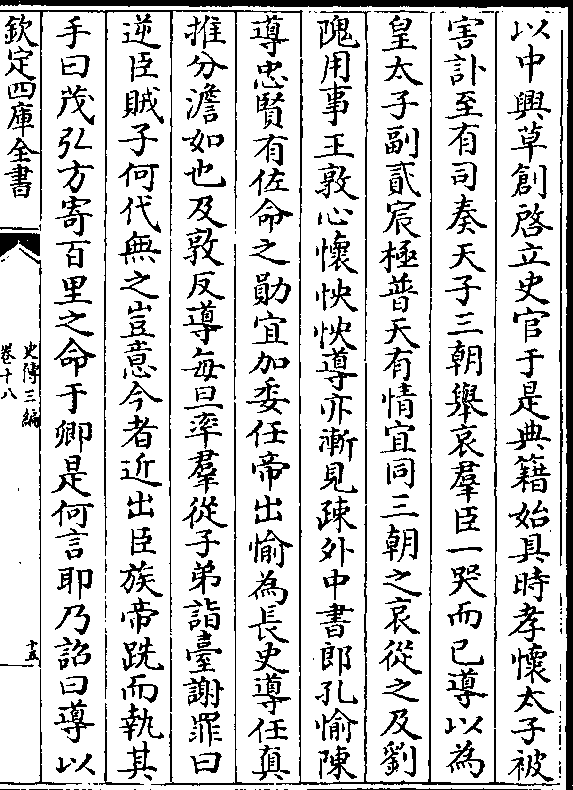 以中興草創啓立史官于是典籍始具時孝懷太子被
害訃至有司奏天子三朝舉哀羣臣一哭而已導以為
皇太子副貳宸極普天有情宜同三朝之哀從之及劉
隗用事王敦心懷怏怏導亦漸見疎外中書郎孔愉陳
導忠賢有佐命之勛宜加委任帝出愉為長史導任真
推分澹如也及敦反導每旦率羣從子弟詣臺謝罪曰
逆臣賊子何代無之豈意今者近出臣族帝跣而執其
手曰茂弘方寄百里之命于卿是何言耶乃詔曰導以
欽定四庫全書
史傳三編
卷十八
十五